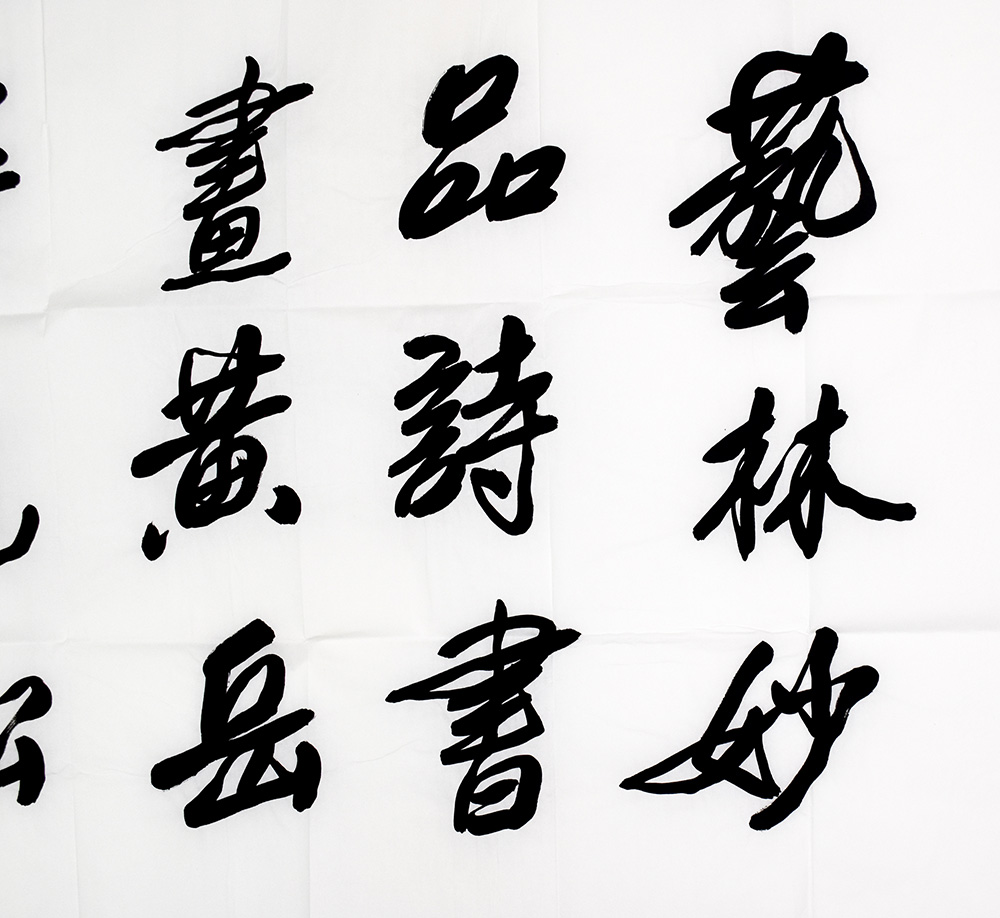 藝林妙
品詩書
畫黃岳